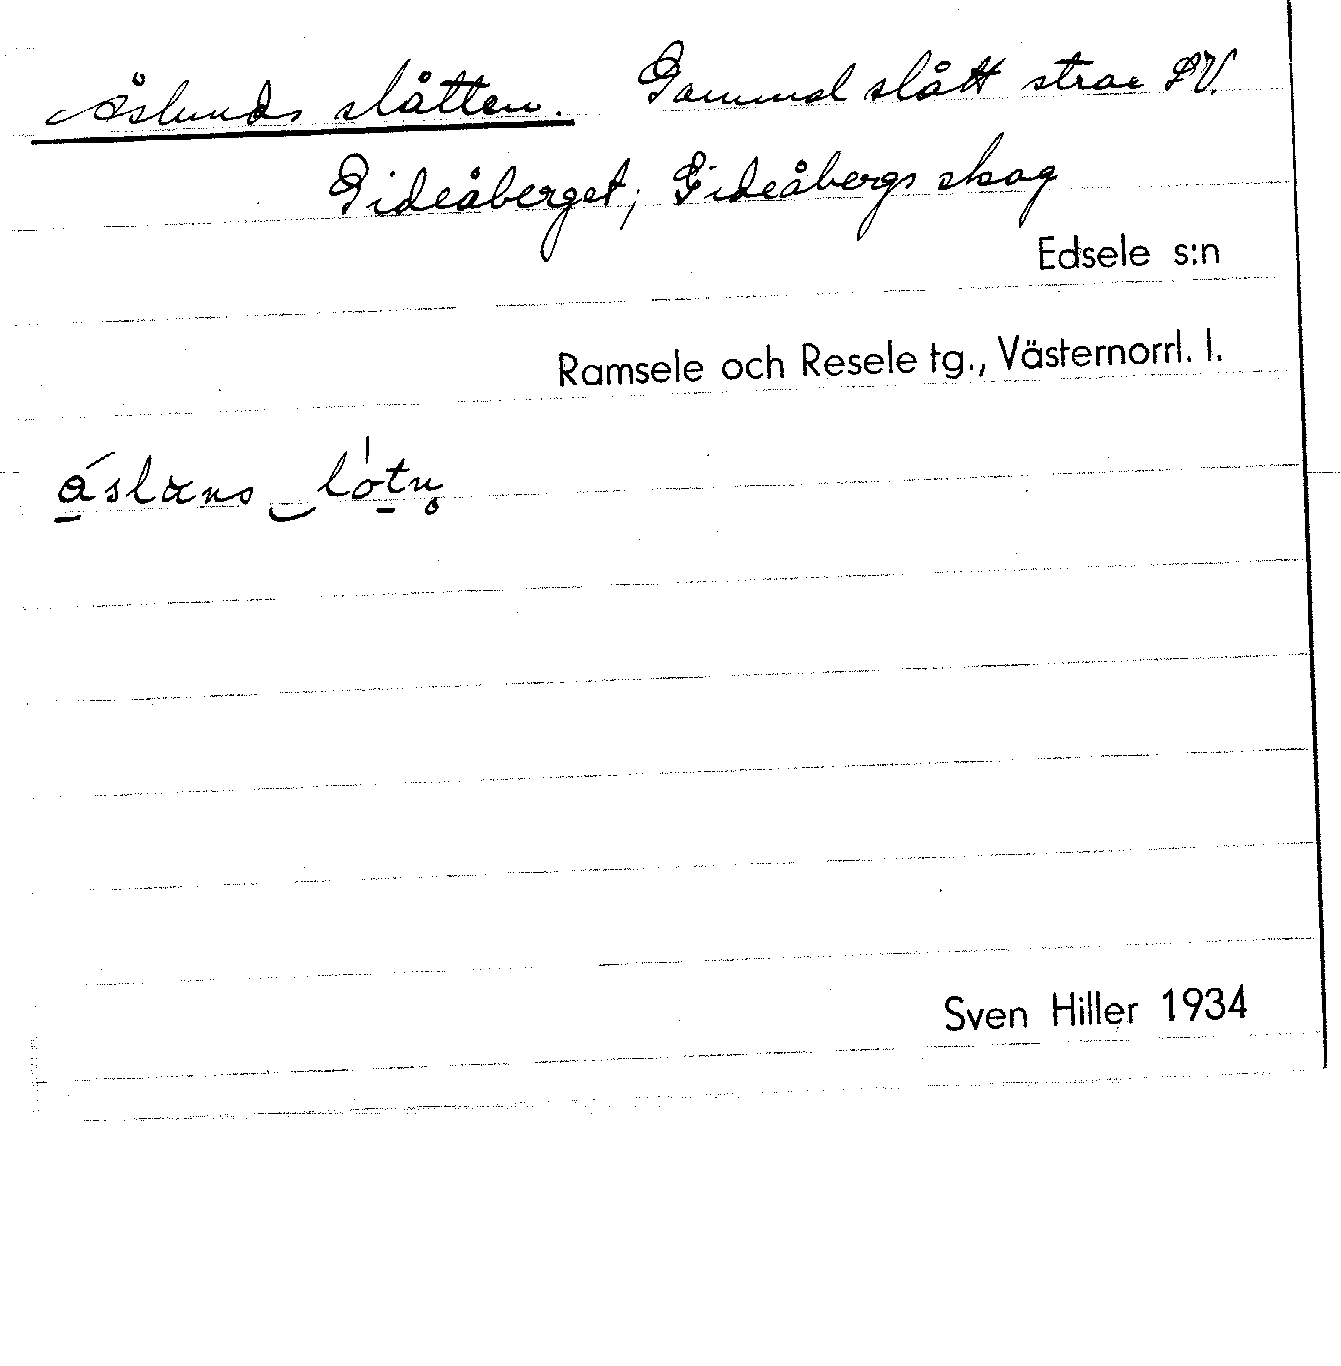 Åslunds slåtten. Gammal slått strax SV.
Gideåberget; Gideåbergs skog
Edsele s:n
Ramsele och Resele tg., Västernorrl. l.
Sven Hiller 1934